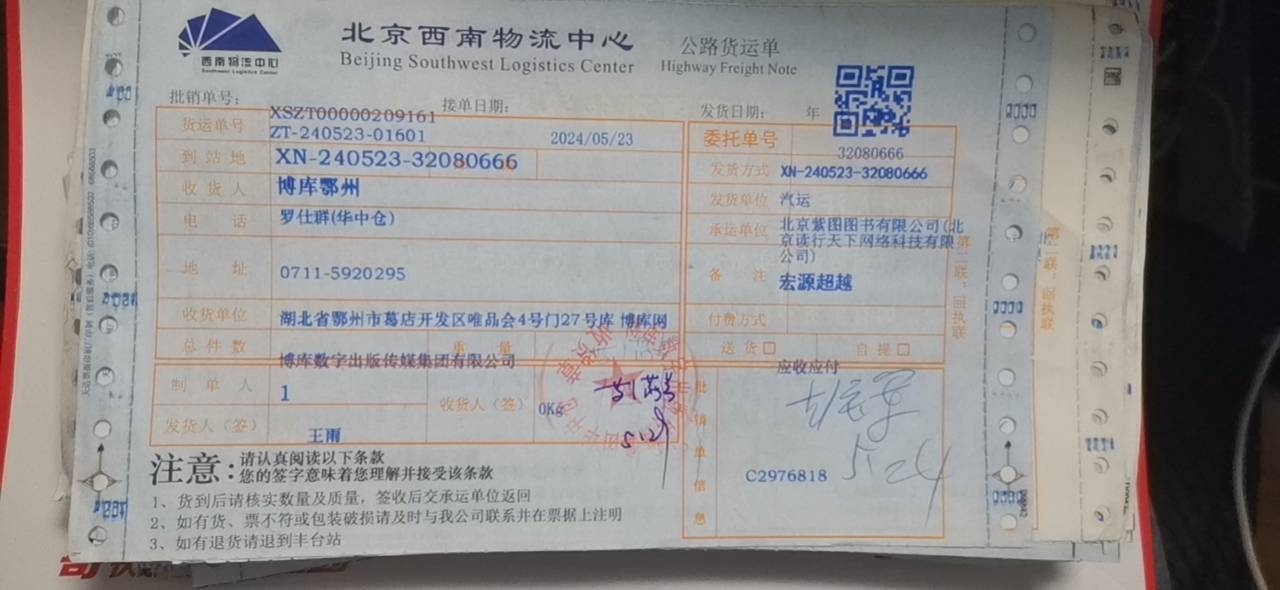 西南物流中心
Southwest Logistics Center
北京西南物流中心
Beijing Southwest Logistics Center
公路货运单
Highway Freight Note
批销单号：
XSZT00000209161
接单日期：
发货日期： 年
货运单号
ZT-240523-01601
2024/05/23
委托单号
32080666
到站地
XN-240523-32080666
发货方式
XN-240523-32080666
收货人
博库鄂州
发货单位
汽运
电话
罗仕群(华中仓)
承运单位
北京紫图图书有限公司(北
京读行天下网络科技有限
公司)
地址
0711-5920295
备注
宏源超越
收货单位
湖北省鄂州市葛店开发区唯品会4号门27号库 博库网
付费方式
总件数
重量
送货□
自提□
博库数字出版传媒集团有限公司
应收应付
制单人
1
收货人（签）
0Kg
5.29
发货人（签）
王雨
批销单信息
C2976818
5.24
第二联：回执联
第二联：回执联
注意：
请认真阅读以下条款
您的签字意味着您理解并接受该条款
1、货到后请核实数量及质量，签收后交承运单位返回
2、如有货、票不符或包装破损请及时与我公司联系并在票据上注明
3、如有退货请退到丰台站